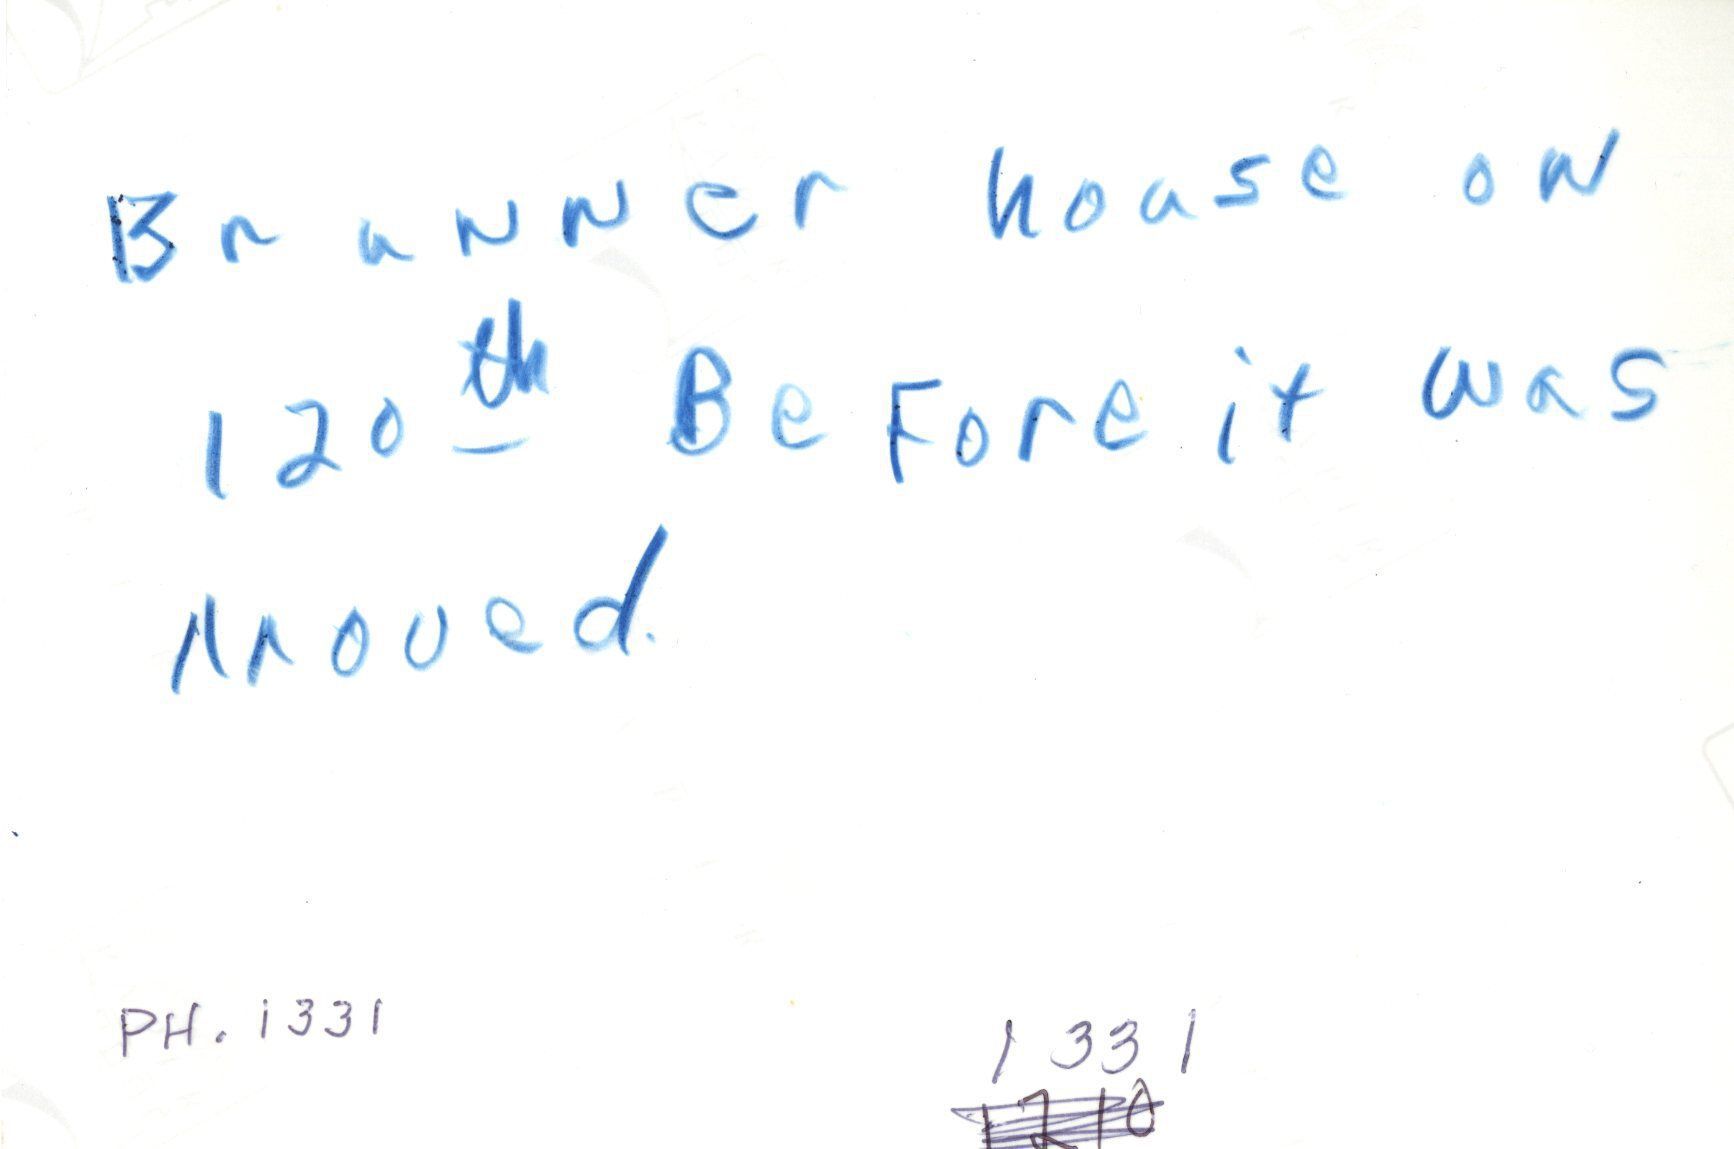 Brunner house on
120th BeFore it was
Moved.
PH. 1331
1331
1210